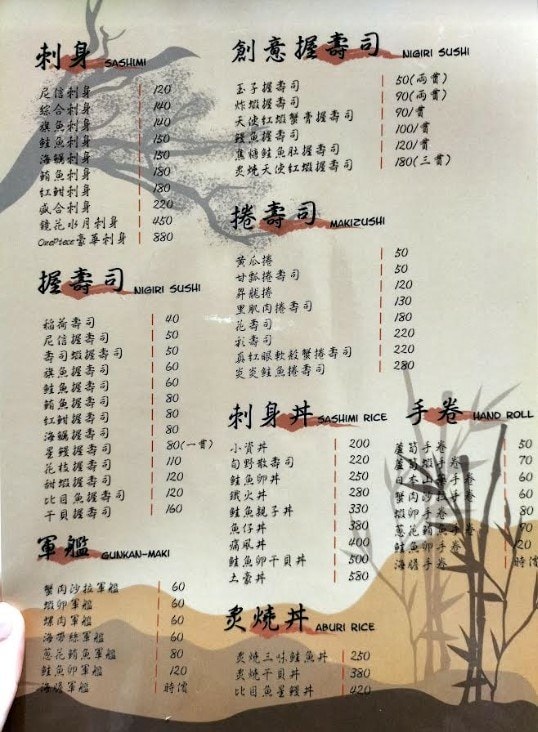 刺身 SASHIMI
尼信刺身 120
綜合刺身 140
旗魚刺身 140
鮭魚刺身 150
海鱺刺身 150
鮪魚刺身 180
紅魽刺身 180
盛合刺身 220
鏡花水月刺身 450
OnePiece豪華刺身 880
握壽司 NIGIRI SUSHI
稻荷壽司 40
尼信握壽司 50
壽司蝦握壽司 50
旗魚握壽司 60
鮭魚握壽司 60
鮪魚握壽司 80
紅魽握壽司 80
海鱺握壽司 80
星鰻握壽司 80(一貫)
花枝握壽司 110
甜蝦握壽司 120
比目魚握壽司 120
干貝握壽司 160
軍艦 GUNKAN-MAKI
蟹肉沙拉軍艦 60
蝦卵軍艦 60
螺肉軍艦 60
海帶絲軍艦 60
蔥花鮪魚軍艦 80
鮭魚卵軍艦 120
海膽軍艦 時價
創意握壽司 NIGIRI SUSHI
玉子握壽司 50(兩貫)
炸蝦握壽司 90(兩貫)
天使紅蝦蟹膏握壽司 90/貫
鰻魚握壽司 100/貫
焦糖鮭魚肚握壽司 120/貫
炙燒天使紅蝦握壽司 180(三貫)
捲壽司 MAKIZUSHI
黃瓜捲 50
甘瓢捲壽司 50
昇龍捲 120
里肌肉捲壽司 130
花壽司 180
彩壽司 220
真紅眼軟殼蟹捲壽司 220
炎炎鮭魚捲壽司 280
刺身丼 SASHIMI RICE
小資丼 200
旬野散壽司 220
鮭魚卵丼 250
鐵火丼 280
鮭魚親子丼 330
魚仔丼 380
痛風丼 400
鮭魚卵干貝丼 500
土豪丼 580
手卷 HAND ROLL
蘆筍手卷 50
蘆筍蝦手卷 70
日本山藥手卷 60
蟹肉沙拉手卷 60
蝦卵手卷 80
蔥花鮪魚手卷 90
鮭魚卵手卷 20
海膽手卷 時價
炙燒丼 ABURI RICE
炙燒三味鮭魚丼 250
炙燒干貝丼 380
比目魚星鰻丼 420